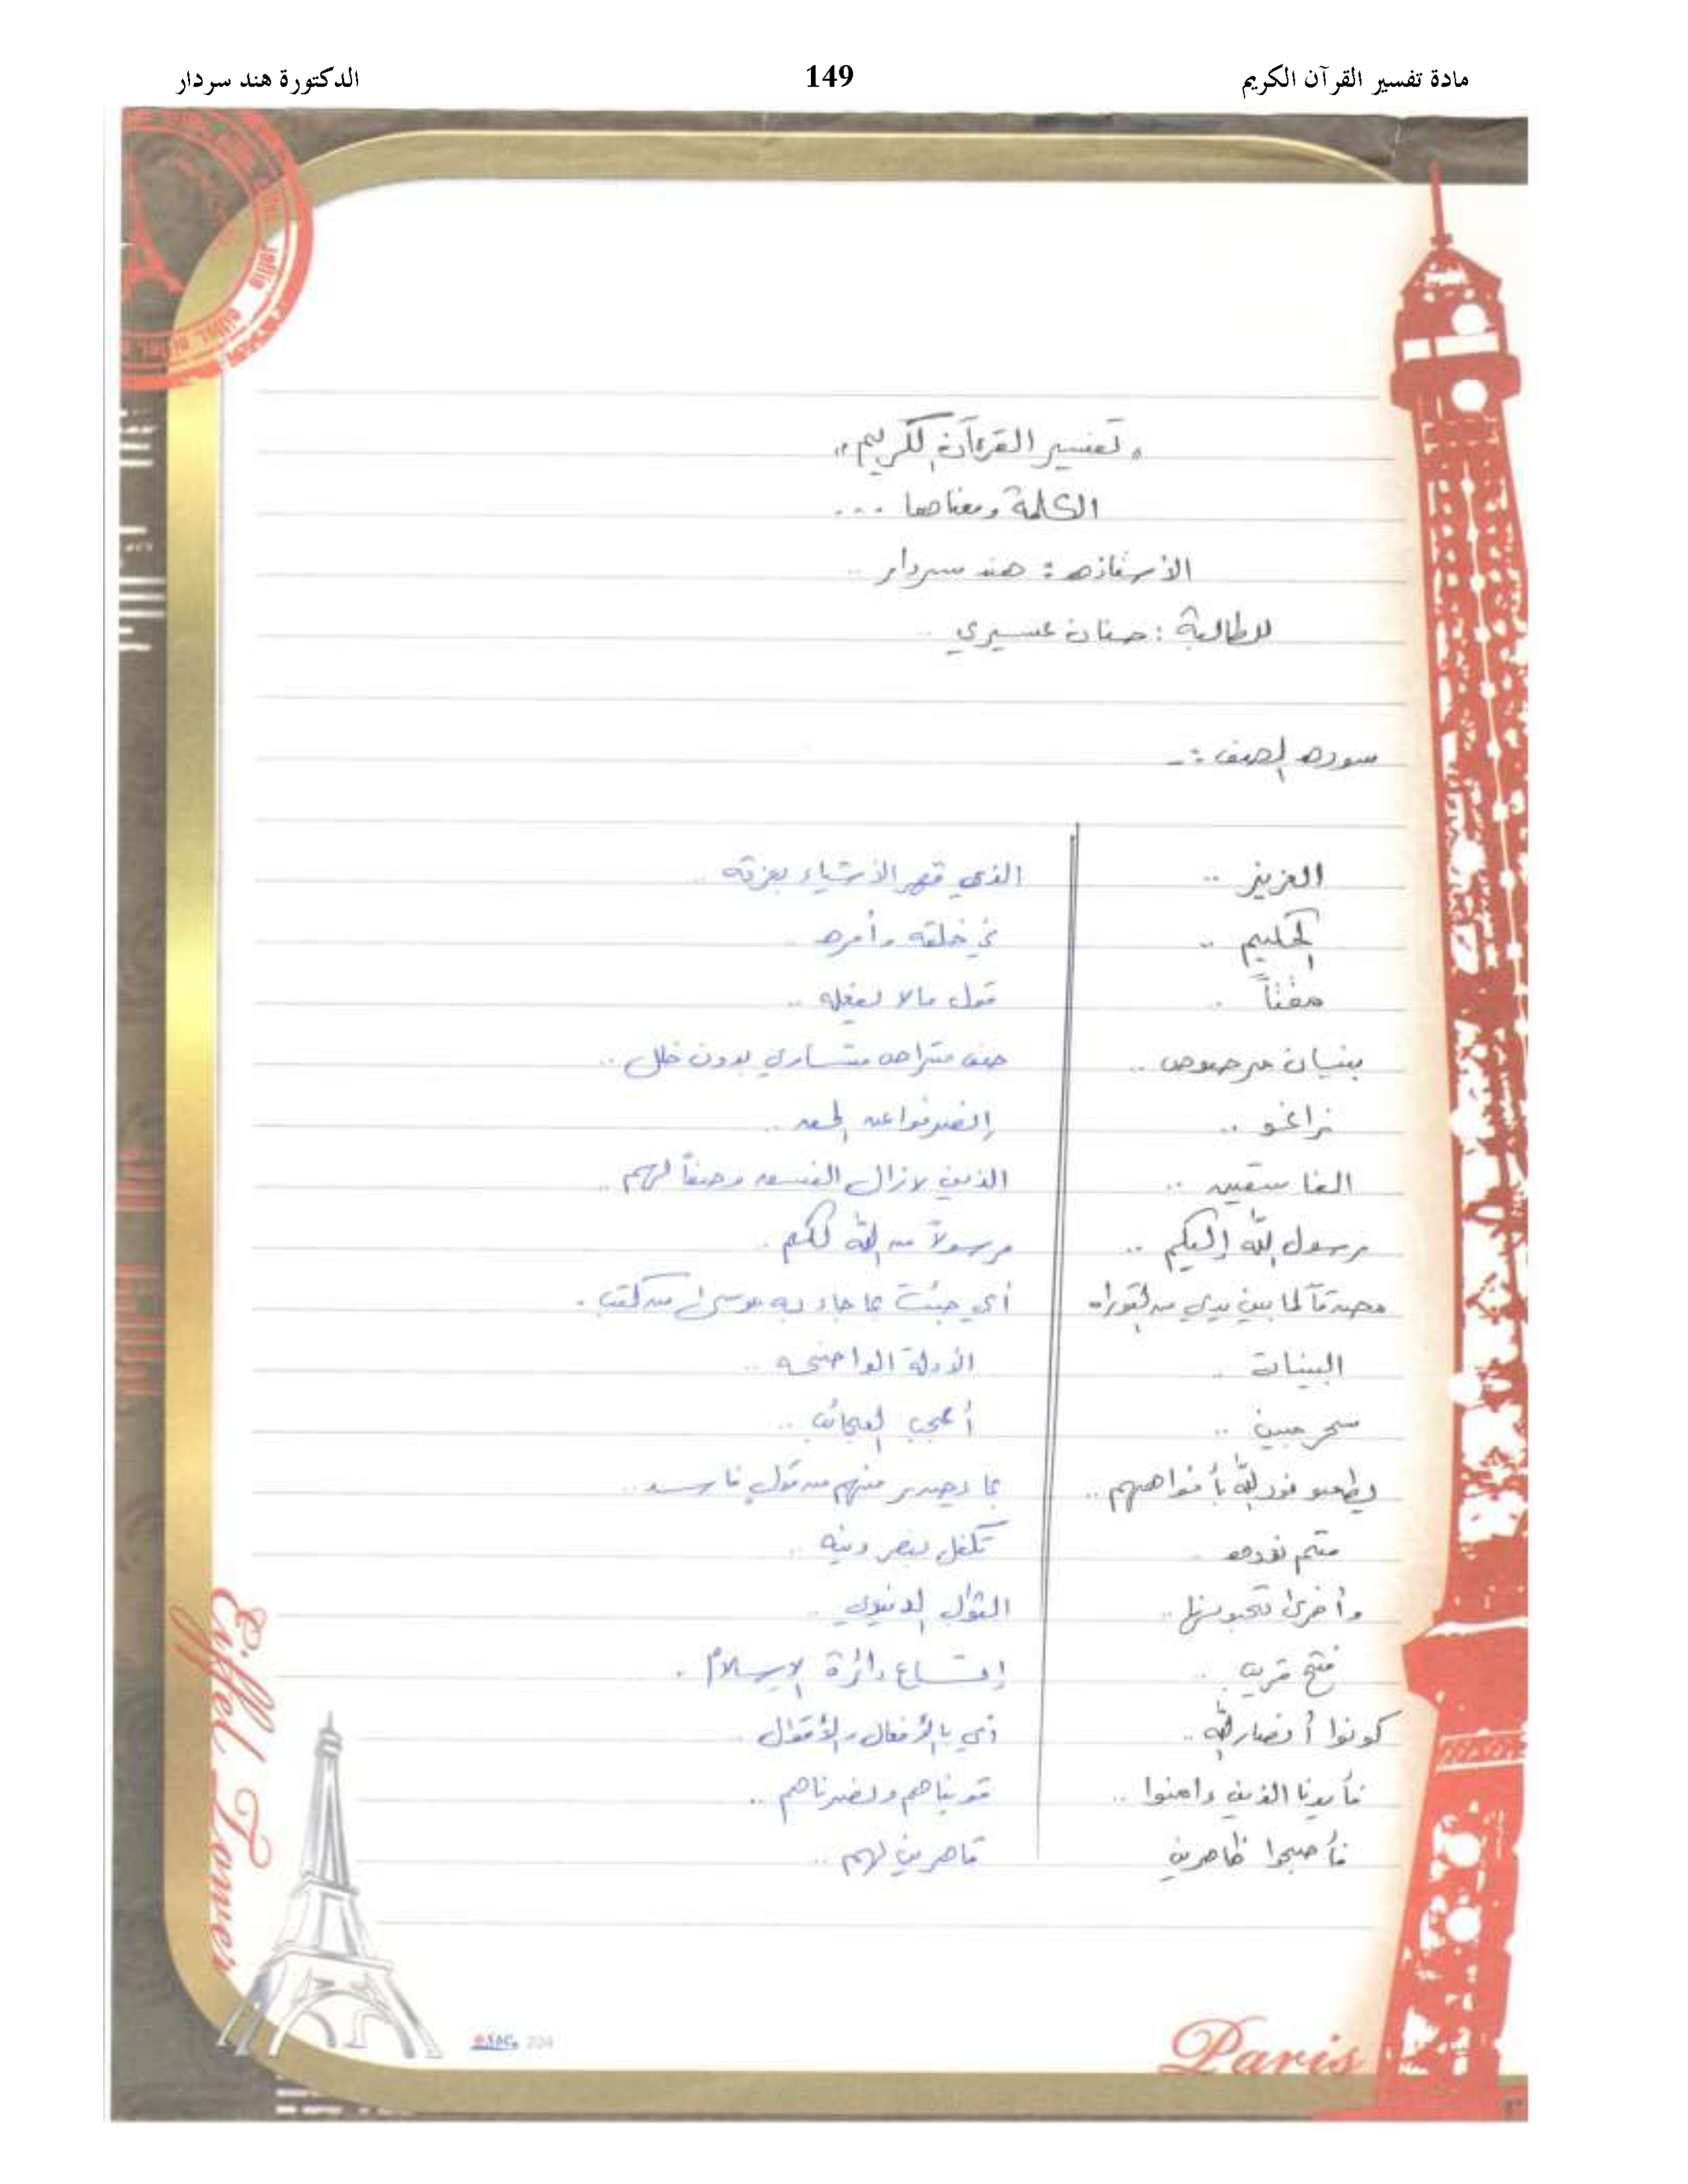 مادة تفسير القرآن الكريم 149 الدكتورة هند سردار
"تفسير القرءآن الكريم"
الكلمة ومعناها ...
الأستاذه : هند سردار ..
الطالبة : حنان عسيري ..
سوره الصف :-
العزيز .. الذي قهر الأشياء بعزته ..
الحكيم .. في خلقه وأمره ..
مقتاً .. قول مالا يفعله ..
بنيان مرصوص .. صف متراص متساوي بدون خلل ..
زاغو .. إنصرفوا عن الحق ..
الفاسقين .. الذين لازال الفسق وصفاً لهم ..
رسول الله إليكم .. مرسولاً من الله لكم .
مصدقاً لما بين يدي من التوراه أي جئت بما جاء به موسى من كتب .
البينات .. الأدلة الواضحه ..
سحر مبين .. أعجب العجائب ..
ليطفئو نور الله بأفواههم .. بما يصدر منهم من قول فاسد ..
متم نوره .. تكفل بنصر دينه ..
وأخرى تحبونها .. الثواب الدنيوي ..
فتح قريب .. إتساع دائرة الإسلام .
كونوا أنصار الله .. أي بالأفعال والأقوال ..
فأيدنا الذين ءامنوا .. قويناهم ونصرناهم ..
فأصبحوا ظاهرين قاهرين لهم ..
Eiffel Tower
Paris